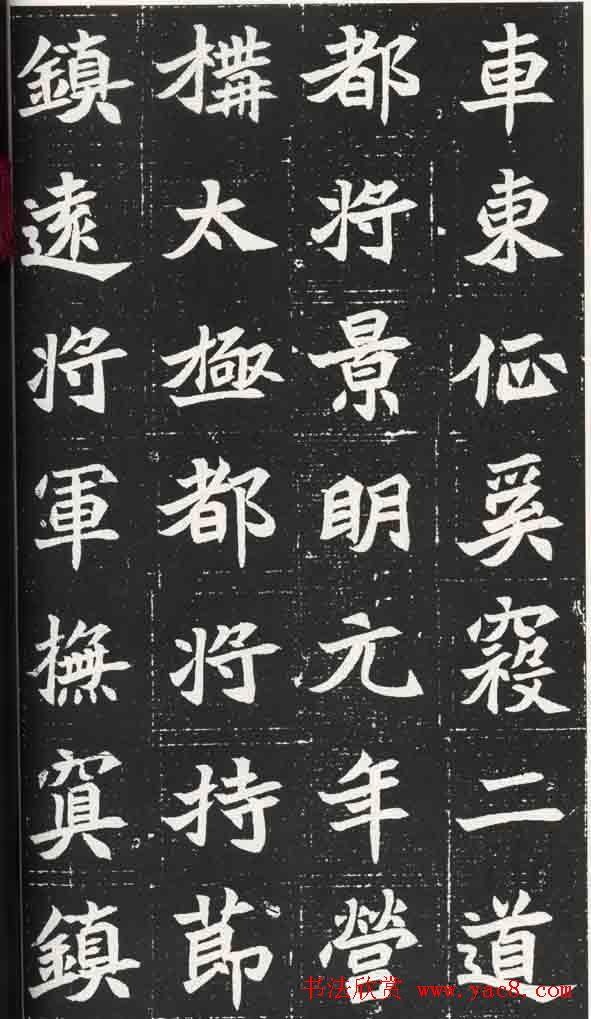 車東征奚寇二道
都将景明元年營
構太極都将持節
鎮遠将軍撫冥鎮
书法欣赏 www.yac8.com